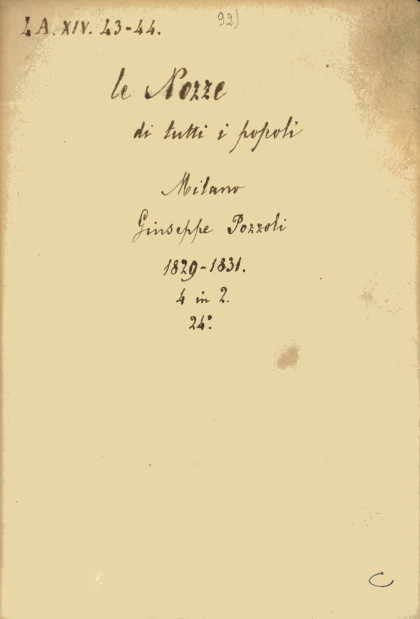 LA. XIV. 43-44.
92)
le Nozze
di tutti i popoli
Milano
Giuseppe Pozzoli
1829-1831.
4 in 2.
24°.
C